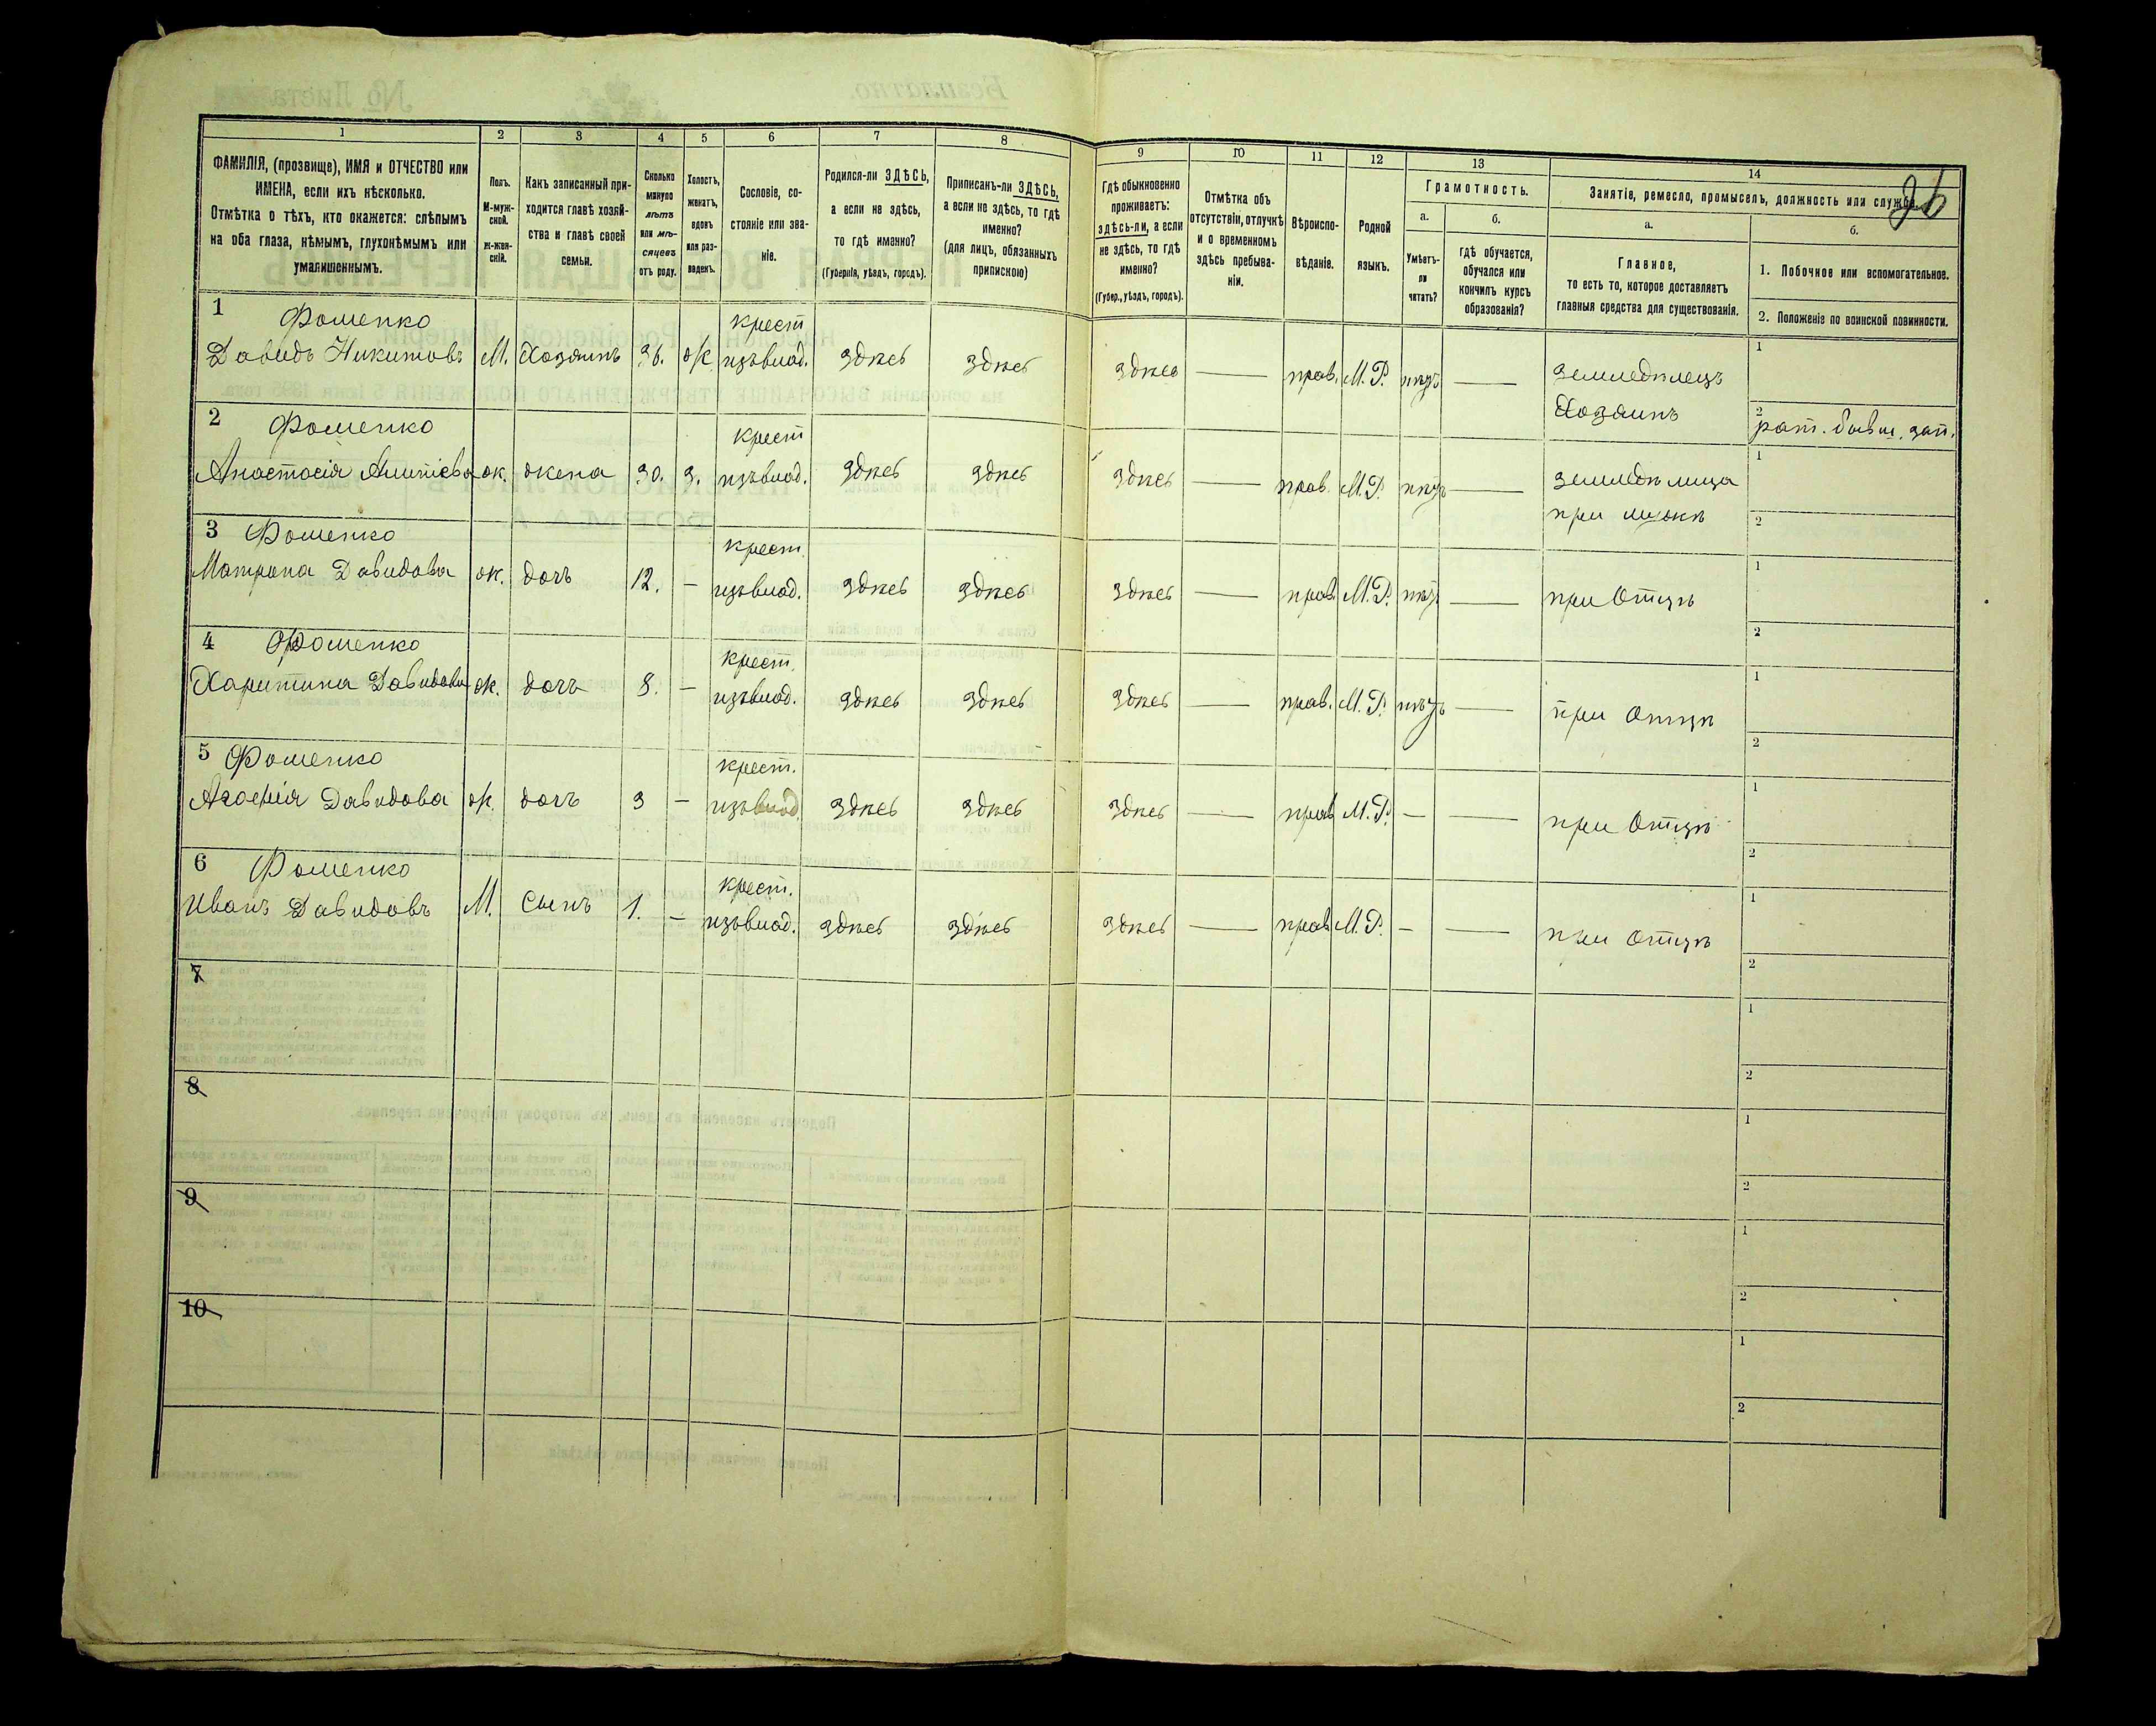 26
1 2 3 4 5 6 7 8 9 10 11 12 13 14
ФАМИЛІЯ, (прозвище), ИМЯ и ОТЧЕСТВО или
ИМЕНА, если ихъ нѣсколько.
Отмѣтка о тѣхъ, кто окажется: слѣпымъ
на оба глаза, нѣмымъ, глухонѣмымъ или
умалишеннымъ.
Полъ.
М-муж-
ской.
Ж-жен-
скій.
Какъ записанный при-
ходится главѣ хозяй-
ства и главѣ своей
семьи.
Сколько
минуло
лѣтъ
или мѣ-
сяцевъ
отъ роду.
Холостъ,
женатъ,
вдовъ
или раз-
веденъ.
Сословіе, со-
стояніе или зва-
ніе.
Родился-ли ЗДѢСЬ,
а если не здѣсь,
то гдѣ именно?
(Губернія, уѣздъ, городъ).
Приписанъ-ли ЗДѢСЬ,
а если не здѣсь, то гдѣ
именно?
(для лицъ, обязанныхъ
припискою)
Гдѣ обыкновенно
проживаетъ:
здѣсь-ли, а если
не здѣсь, то гдѣ
именно?
(Губер., уѣздъ, городъ).
Отмѣтка объ
отсутствіи, отлучкѣ
и о временномъ
здѣсь пребыва-
ніи.
Вѣроиспо-
вѣданіе.
Родной
языкъ.
Грамотность.
а.
Умѣетъ-
ли
читать?
б.
Гдѣ обучается,
обучался или
кончилъ курсъ
образованія?
Занятія, ремесло, промыселъ, должность или служба.
а.
Главное,
то есть то, которое доставляетъ
главныя средства для существованія.
б.
1. Побочное или вспомогательное.
2. Положеніе по воинской повинности.
1 Фоменко крест 1
Давидъ Никитовъ М. Хозяинъ 36. ж. изъ влад. здѣсь здѣсь здѣсь — прав. М.Р. нѣтъ — земледѣлецъ
Хозяинъ 2 рат. бывш. зап.
2 Фоменко крест 1
Анастасія ж. жена 30. з. изъ влад. здѣсь здѣсь здѣсь — прав. М.Р. нѣтъ — земледѣлица
при мужѣ 2
3 Фоменко крест. 1
Матрона Давидова ж. дочь 12. — изъ влад. здѣсь здѣсь здѣсь — прав. М.Р. нѣтъ — при Отцѣ
2
4 Фоменко крест. 1
Харитина Давидова ж. дочь 8. — изъ влад. здѣсь здѣсь здѣсь — прав. М.Р. нѣтъ — при Отцѣ
2
5 Фоменко крест. 1
Агафія Давидова ж. дочь 3 — изъ влад. здѣсь здѣсь здѣсь — прав М.Р. — — при Отцѣ
2
6 Фоменко крест. 1
Иванъ Давидовъ М. Сынъ 1. — изъ влад. здѣсь здѣсь здѣсь — прав М.Р. — — при Отцѣ
2
7 1
2
8 1
2
9 1
2
10 1
2